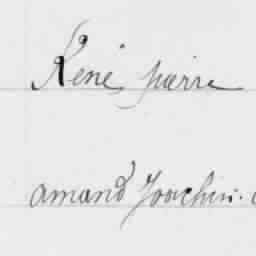 René, pierre
amand Joachin.